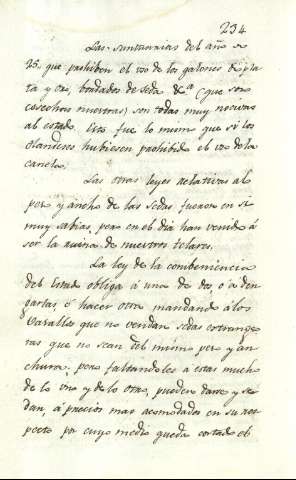 234
Las suntuarias del año de
25. que prohiben el uso de los galones de pla-
ta y oro, bordados de seda &ª (que son
cosechas nuestras) son todas muy nocivas
al estado. Esto fue lo mismo que si los
Olandeses hubiesen prohibido el uso de la
canela.
Las otras leyes relativas al
peso y ancho de las sedas fueron en si
muy sabias, pero en el dia han venido á
ser la ruina de nuestros telares.
La ley de la combeniencia
del Estado obliga á una de dos ó a
ó hacer otra mandando á los
Vasallos que no vendan sedas estrange-
ras que no sean del mismo peso y an-
chura; pero faltandoles a estas mucho
de lo uno y de lo otro, pueden darse y se
dan, á precios mas acomodados en su res-
pecto por cuyo medio queda cortado el